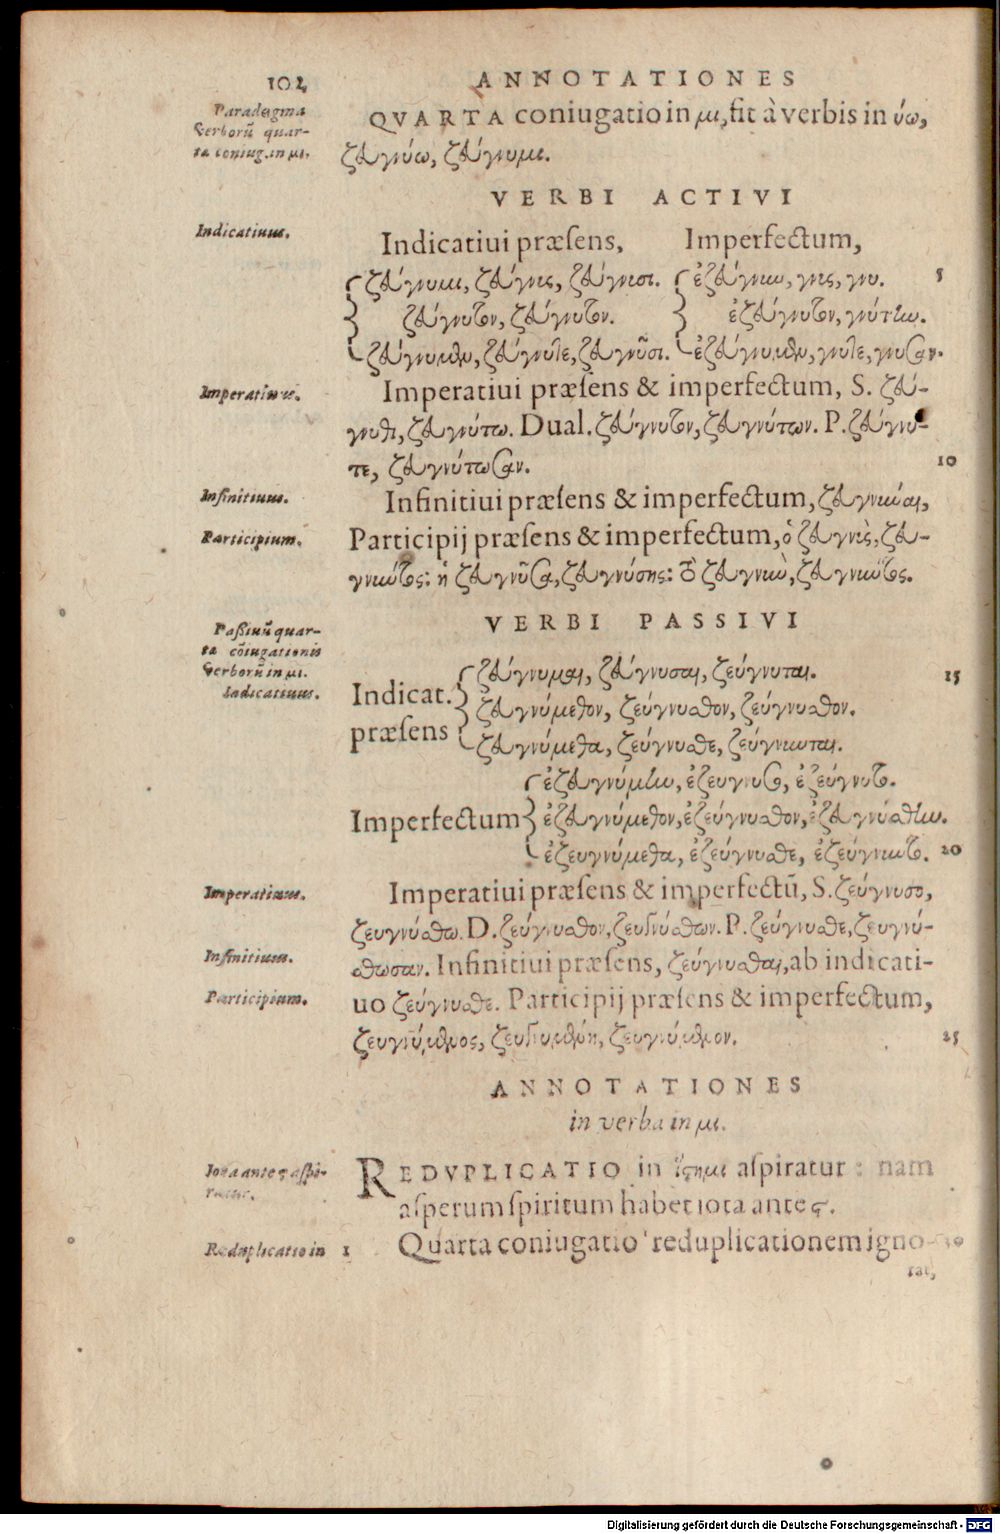 102
ANNOTATIONES
Paradeigma
verborũ quar-
ta coniug. in μι.
QVARTA coniugatio in μι, fit à verbis in ύω,
ζευγνύω, ζεύγνυμι.
VERBI ACTIVI
Indicatiuus.
Indicatiui præsens, Imperfectum,
ζεύγνυμι, ζεύγνυς, ζεύγνυσι. ἐζεύγνυν, γνυς, γνυ.
5
ζεύγνυτον, ζεύγνυτον. ἐζεύγνυτον, γνύτην.
ζεύγνυμεν, ζεύγνυτε, ζευγνῦσι. ἐζεύγνυμεν, γνυτε, γνυσαν.
Imperatiuus.
Imperatiui præsens & imperfectum, S. ζεύ-
γνυθι, ζευγνύτω. Dual. ζεύγνυτον, ζευγνύτων. P. ζεύγνυ-
τε, ζευγνύτωσαν.
10
Infinitiuus.
Infinitiui præsens & imperfectum, ζευγνύναι,
Participium.
Participij præsens & imperfectum, ὁ ζευγνὺς, ζευ-
γνύντος: ἡ ζευγνῦσα, ζευγνύσης: τὸ ζευγνὺν, ζευγνύντος.
VERBI PASSIVI
Paßiuũ quar-
ta cõiugationis
verborũ in μι.
Indicatiuus.
Indicat.
præsens
ζεύγνυμαι, ζεύγνυσαι, ζεύγνυται.
15
ζευγνύμεθον, ζεύγνυσθον, ζεύγνυσθον.
ζευγνύμεθα, ζεύγνυσθε, ζεύγνυνται.
Imperfectum
ἐζευγνύμην, ἐζεύγνυσο, ἐζεύγνυτο.
ἐζευγνύμεθον, ἐζεύγνυσθον, ἐζευγνύσθην.
ἐζευγνύμεθα, ἐζεύγνυσθε, ἐζεύγνυντο.
20
Imperatiuus.
Imperatiui præsens & imperfectũ, S. ζεύγνυσο,
ζευγνύσθω. D. ζεύγνυσθον, ζευγνύσθων. P. ζεύγνυσθε, ζευγνύ-
Infinitiuus.
σθωσαν. Infinitiui præsens, ζεύγνυσθαι, ab indicati-
Participium.
uo ζεύγνυσθε. Participij præsens & imperfectum,
ζευγνύμενος, ζευγνυμένη, ζευγνύμενον.
25
ANNOTATIONES
in verba in μι.
Iota ante ϛ aspi-
ratur.
REDVPLICATIO in ἵϛημι aspiratur: nam
asperum spiritum habet iota ante ϛ.
Reduplicatio in
1 Quarta coniugatio reduplicationem igno-
30
rat,
Digitalisierung gefördert durch die Deutsche Forschungsgemeinschaft - DFG